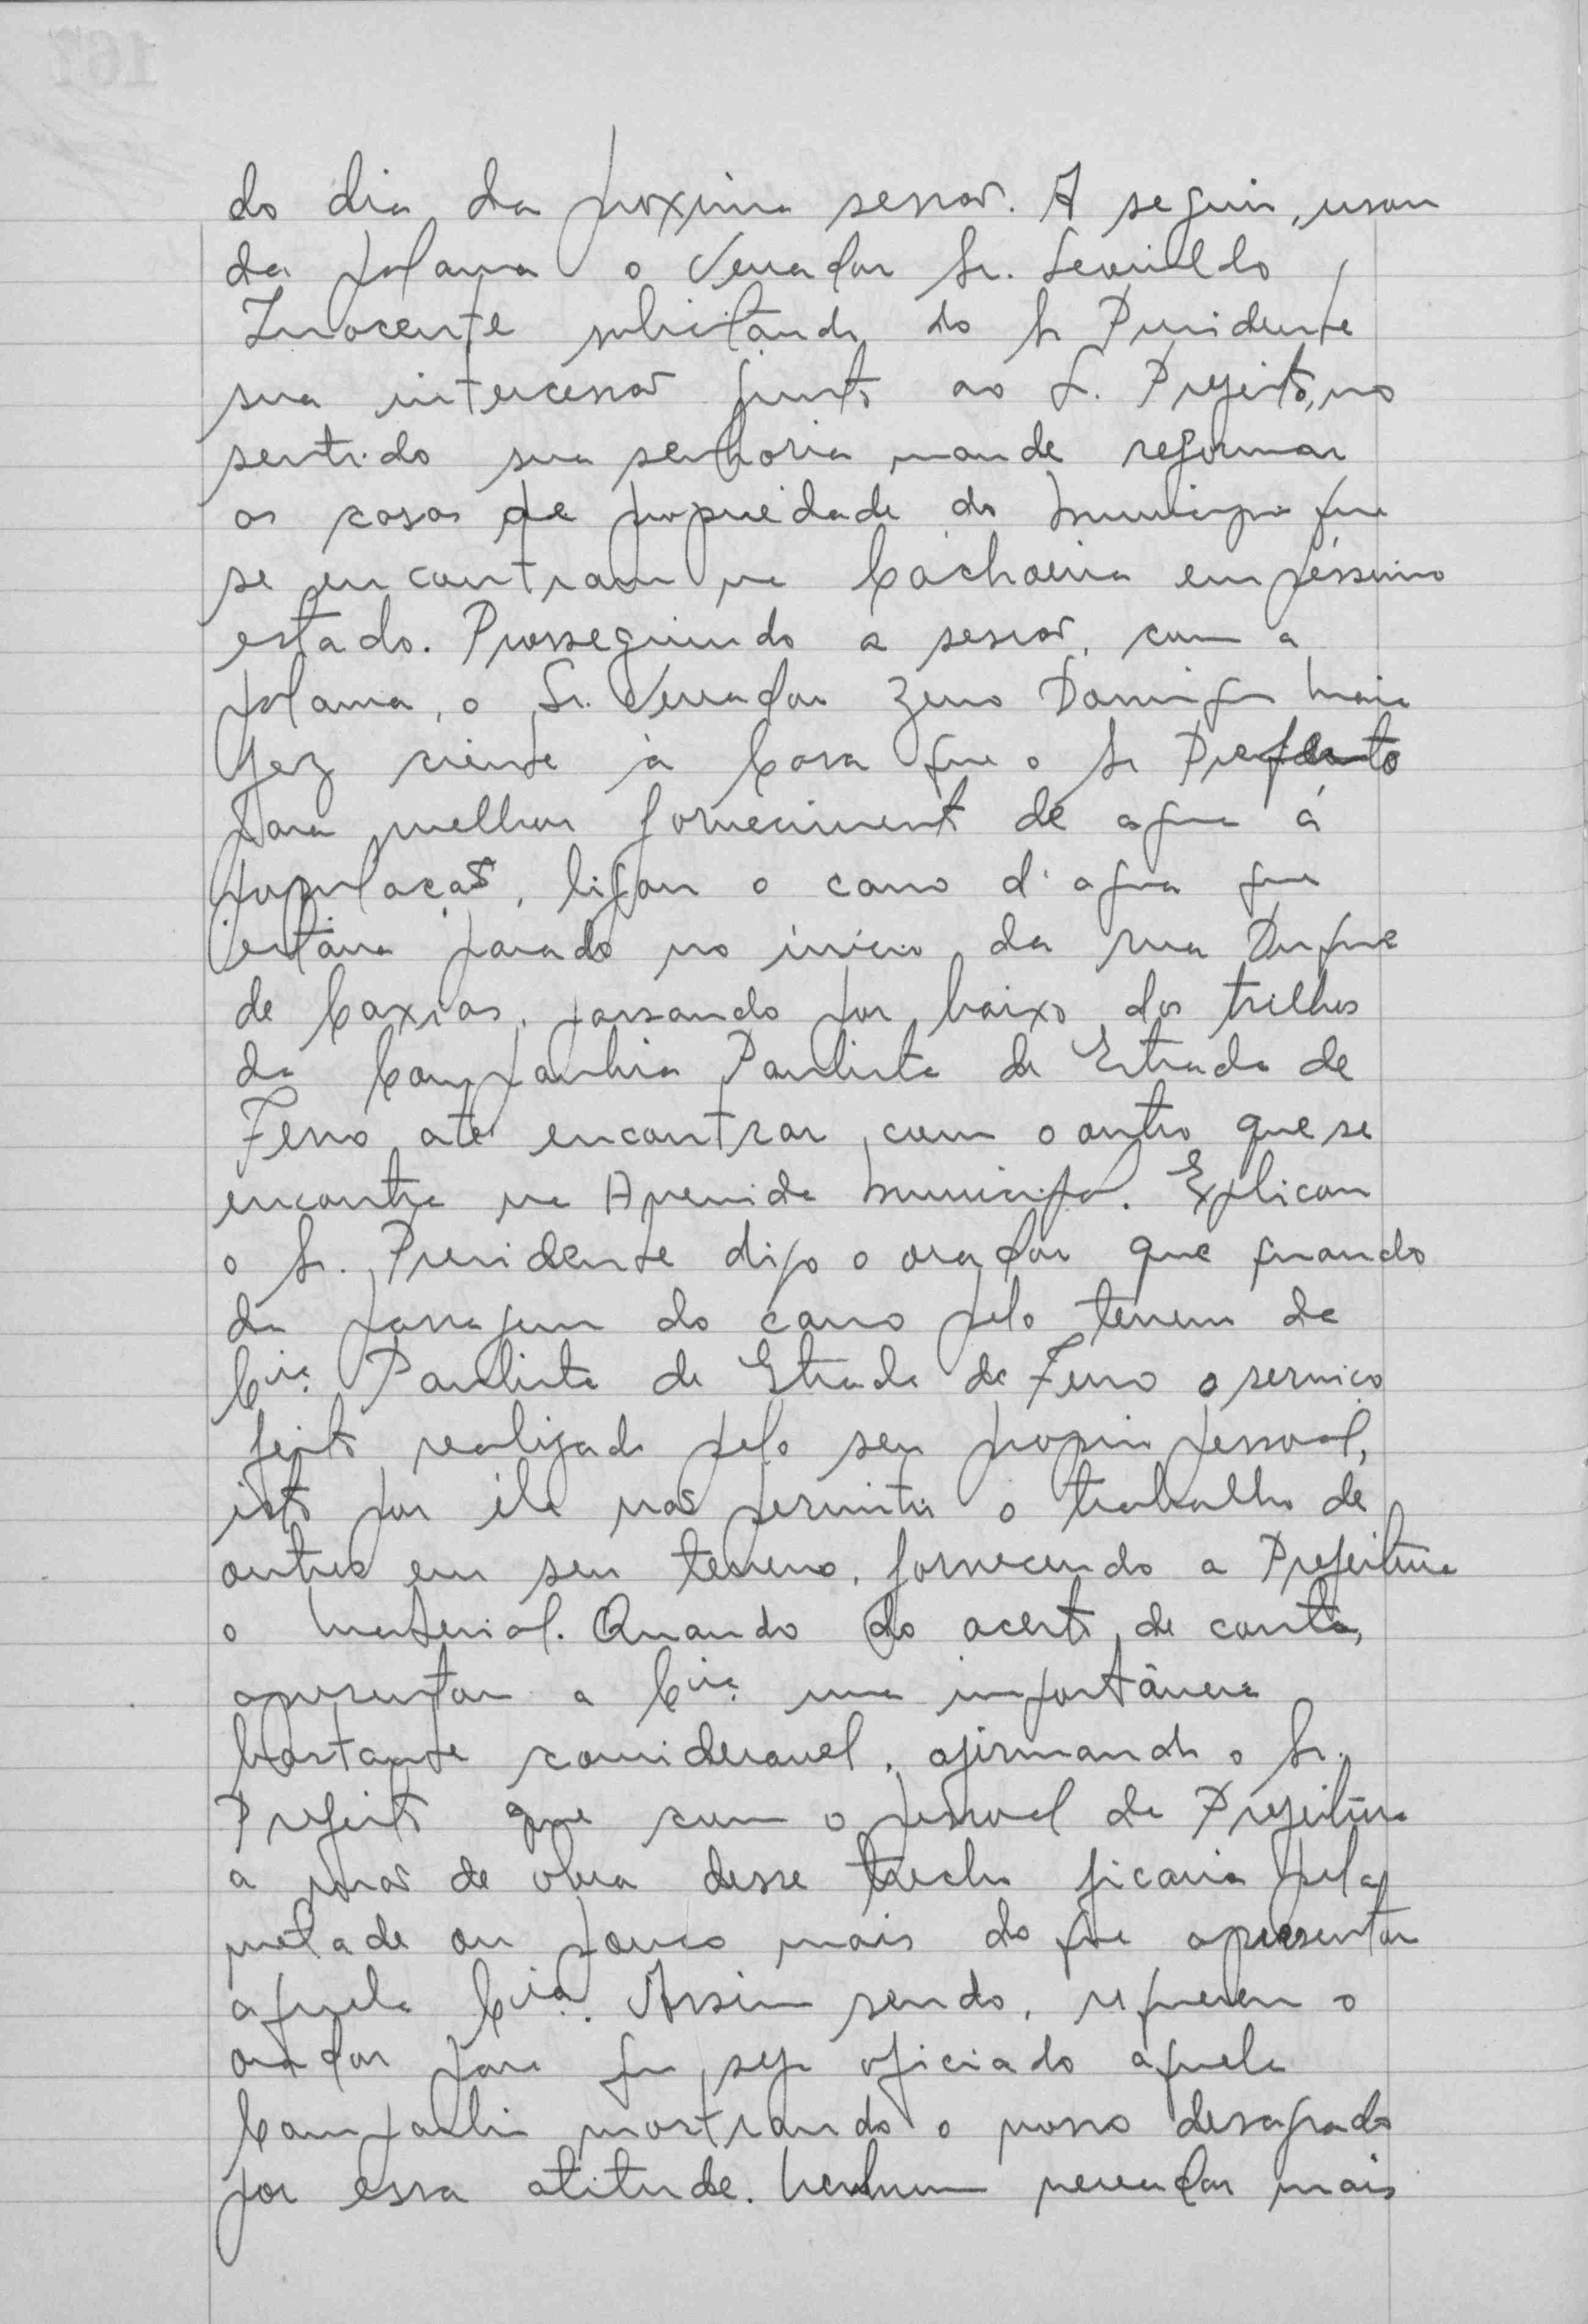 do dia da proxima sessão. A seguir, usou
da palavra o Vereador Sr. Leovildo
Inocente solicitando do Sr Presidente
sua intercessão junto ao Sr. Prefeito, no
sentido sua senhoria mande reformar
as casas de propriedade do Municipio que
se encontram na Cachoeira em péssimo
estado. Prosseguindo a sessão, com a
palavra, o Sr. Vereador Zeno Domingos Maia
fez ciente à Casa que o Sr Prefeito
para melhor fornecimento de agua á
população, ligou o cano d'agua que
estava parado no início da rua Duque
de Caxias, passando por baixo dos trilhos
da Companhia Paulista de Estrada de
Ferro até encontrar com o outro que se
encontra na Avenida Municipal. Explicou
o Sr. Presidente digo o orador que quando
da passagem do cano pelo terreno da
Cia. Paulista de Estrada de Ferro o serviço
feito realizado pelo seu proprio pessoal,
isto por ela não permitir o trabalho de
outros em seu terreno, fornecendo a Prefeitura
o material. Quando do acerto de conta,
apresentou a Cia. uma importância
bastante consideravel, afirmando o Sr.
Prefeito que com o pessoal da Prefeitura
a mão de obra desse trecho ficaria pela
metade ou pouco mais do que apresentou
aquela Cia. Assim sendo, requereu o
orador para que seja oficiado aquela
Companhia mostrando o nosso desagrado
por essa atitude. Nenhum vereador mais